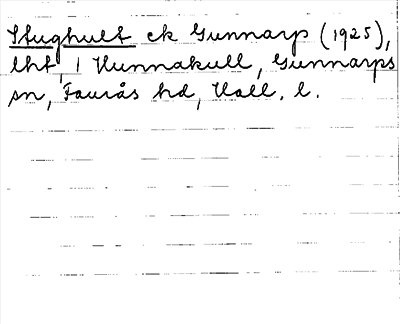 Stughult ek Gunnarp (1925),
lht, 1 Hunnakull, Gunnarps
sn, Faurås hd, Hall. l.